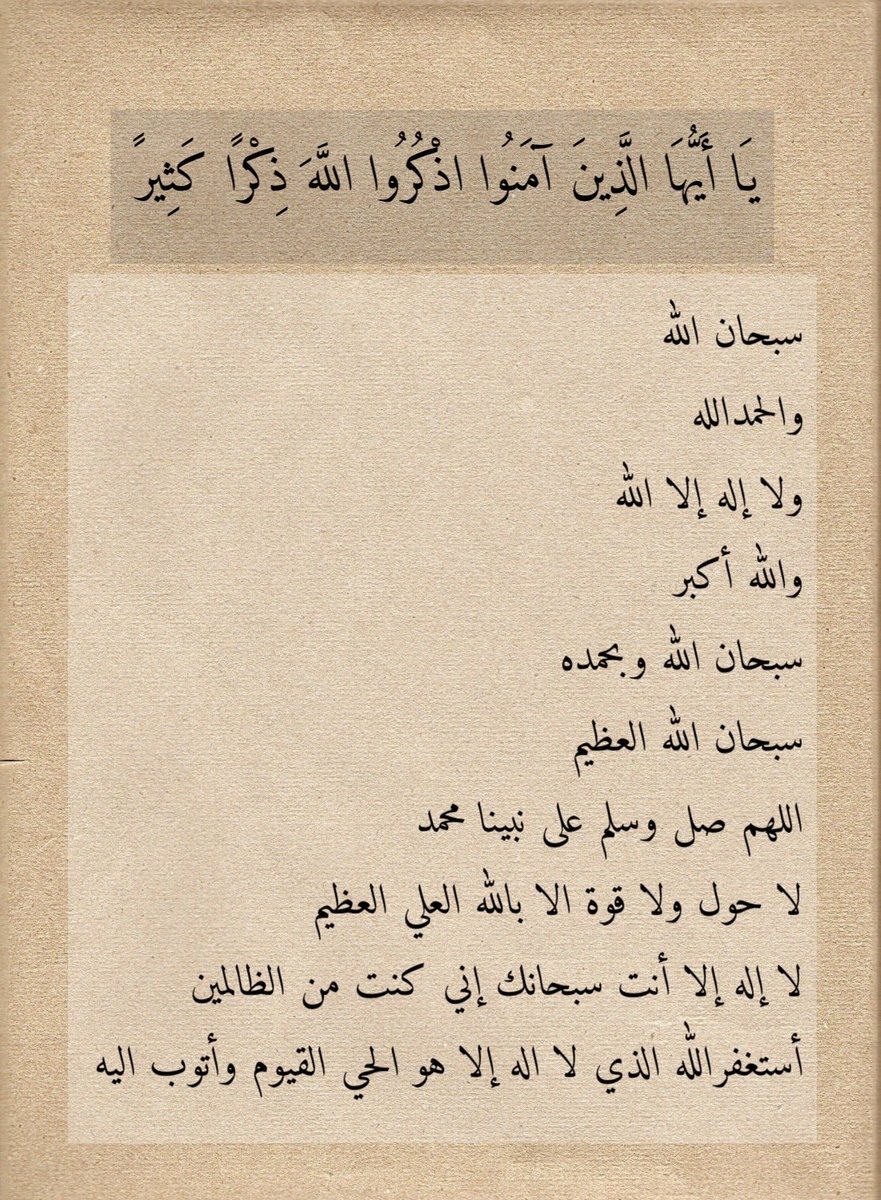 يَا أَيُّهَا الَّذِينَ آمَنُوا اذْكُرُوا اللَّهَ ذِكْرًا كَثِيرً
سبحان الله
والحمدالله
ولا إله إلا الله
والله أكبر
سبحان الله وبحمده
سبحان الله العظيم
اللهم صل وسلم على نبينا محمد
لا حول ولا قوة الا بالله العلي العظيم
لا إله إلا أنت سبحانك إني كنت من الظالمين
أستغفرالله الذي لا اله إلا هو الحي القيوم وأتوب اليه